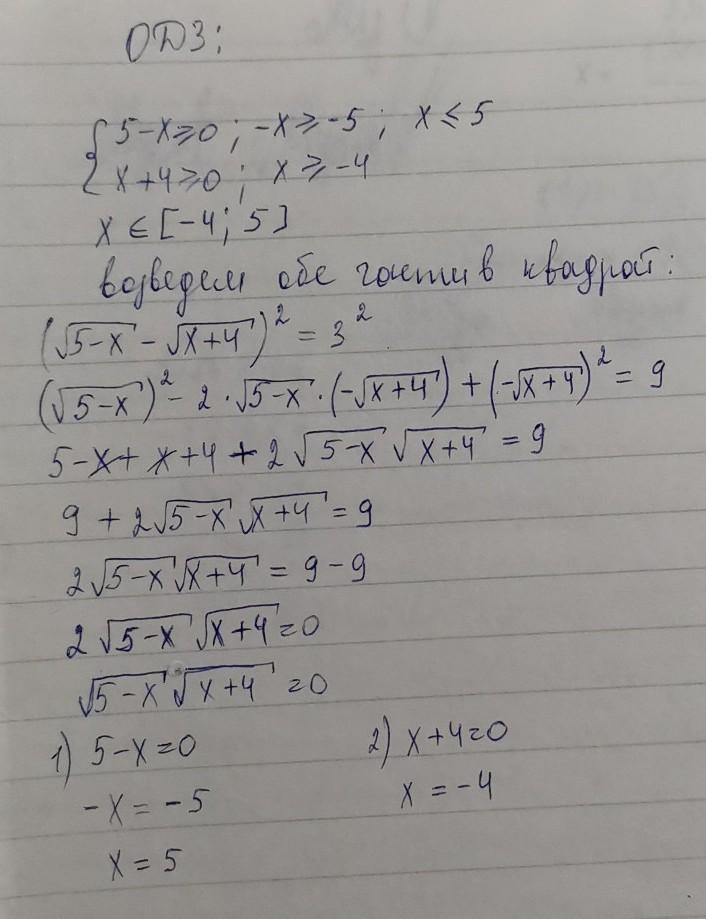 ОДЗ:
{5-x≥0; -x≥-5; x≤5
{x+4≥0; x≥-4
x∈[-4; 5]
возведем обе части в квадрат:
(√5-x - √x+4)² = 3²
(√5-x)² - 2·√5-x·(-√x+4) + (-√x+4)² = 9
5-x+x+4+2√5-x √x+4 = 9
9+2√5-x √x+4 = 9
2√5-x √x+4 = 9-9
2√5-x √x+4 = 0
√5-x √x+4 = 0
1) 5-x=0 2) x+4=0
-x = -5 x = -4
x = 5